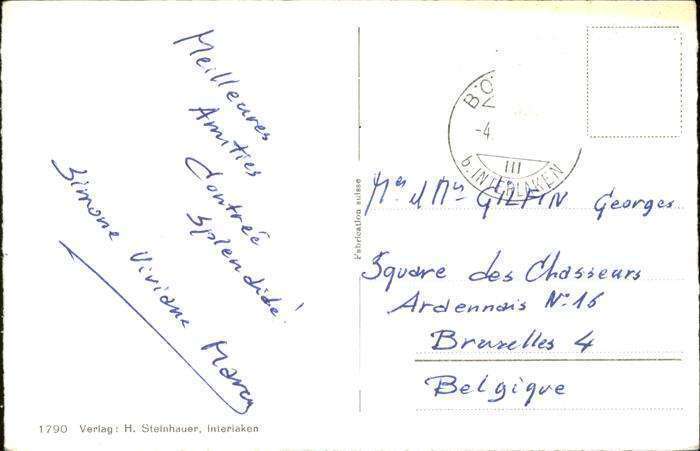 Meilleures
Amities
Contrée
splendide!
Simone Viviane Marcy
BÖ
-4.
III
b. INTERLAKEN
Fabrication suisse
Mr et Me GILPIN Georges
Square des Chasseurs
Ardennais No 16
Bruxelles 4
Belgique
1790 Verlag: H. Steinhauer, Interlaken